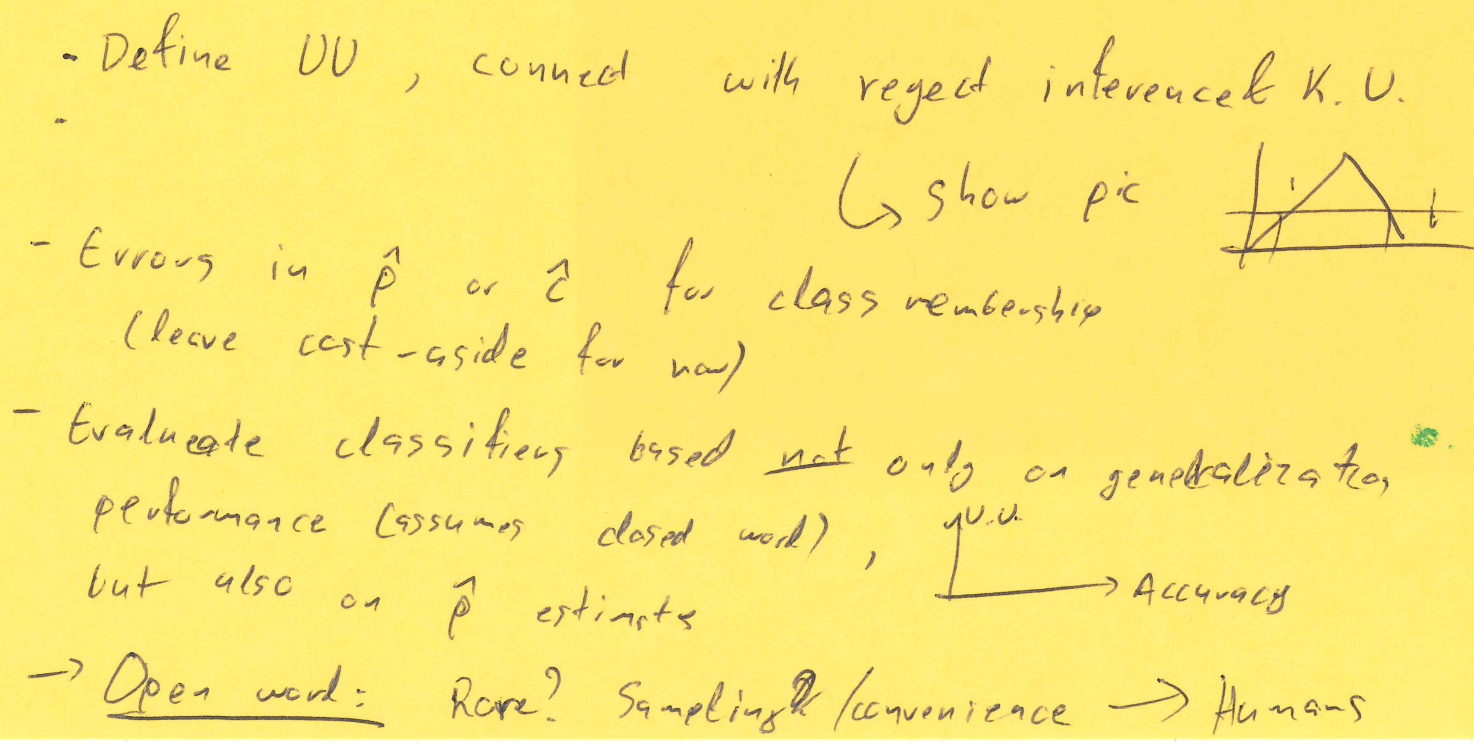 - Define UU, connect with reject inference & K.U.
-
↳ show pic
- Errors in p̂ or ĉ for class membership
(leave cost-aside for now)
- Evaluate classifiers based not only on generalization
performance (assumes closed word),
U.U.
but also on p̂ estimates
→ Accuracy
→ Open word: Rare? Sampling /convenience → Humans